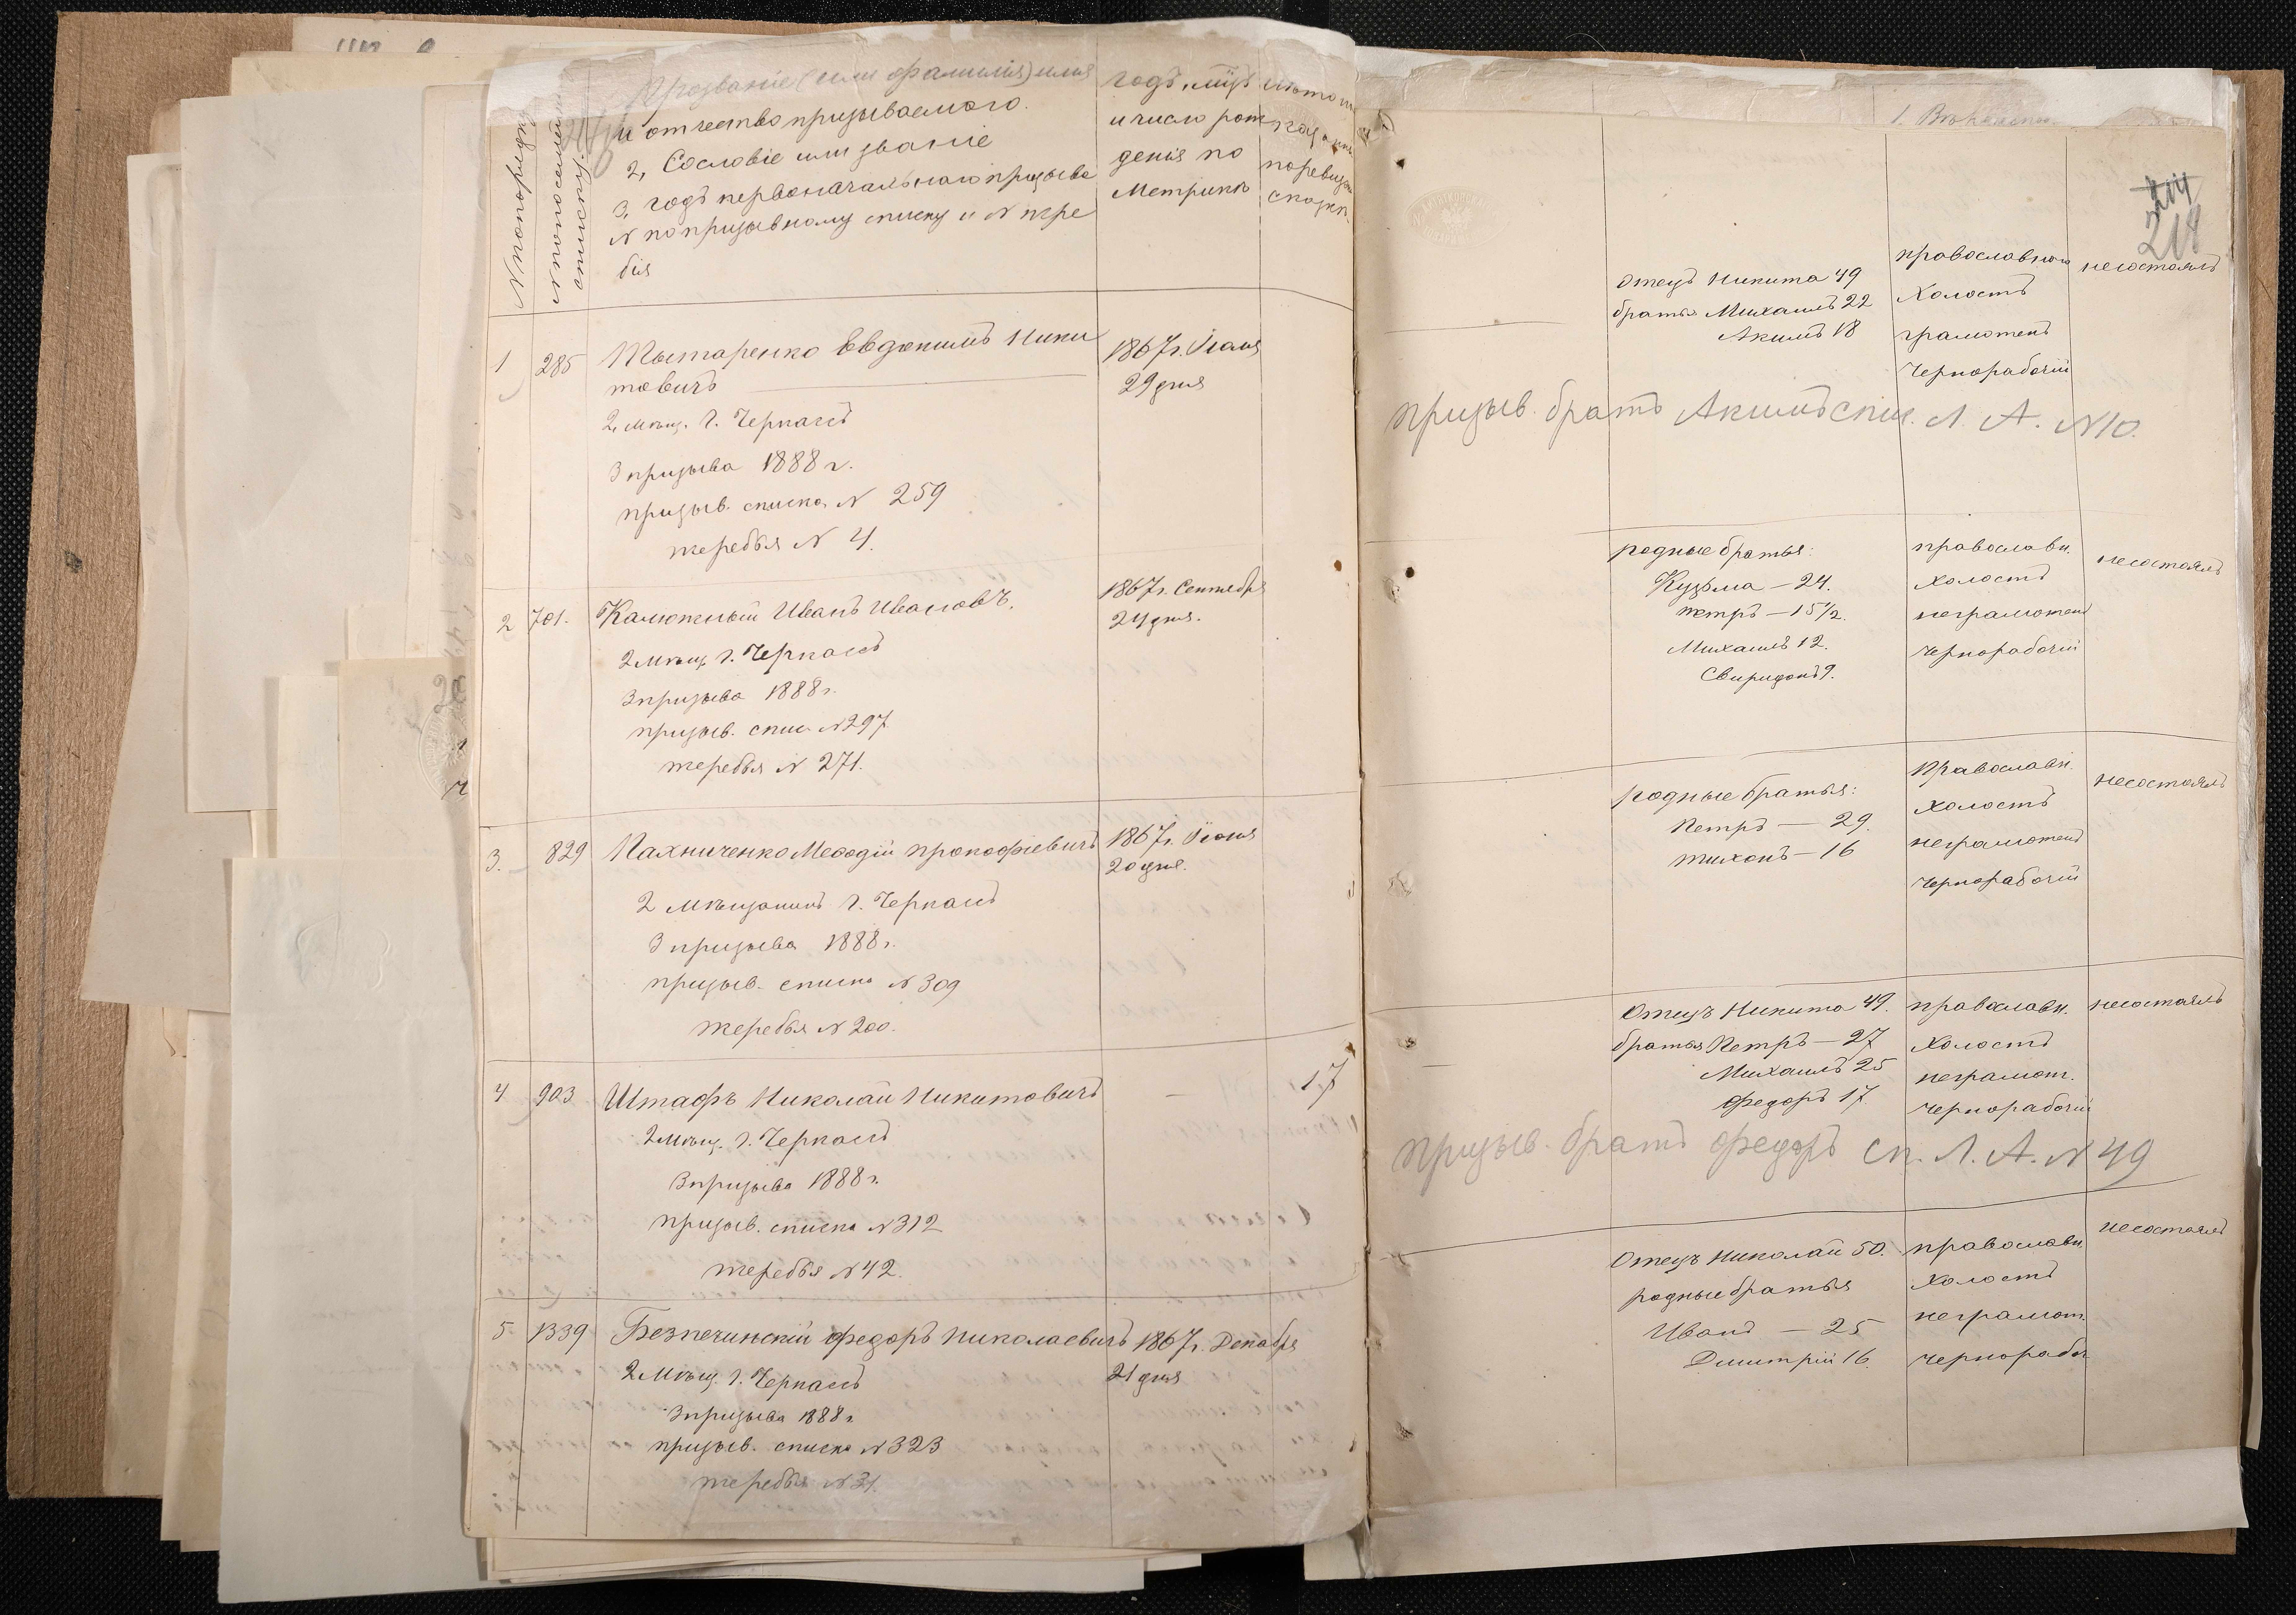 № по порядку
№ по посемейному списку.
Прозваніе (или фамилія) имя
и отчество призываемого.
2, Сословіе или званіе
3, годъ первоначальнаго призыва
№ по призывному списку и № жре
бія
годъ, мцъ
и число рож
денія по
Метрикѣ
лѣта
по ревиз
сказк.
1
285
Тытаренко Евдокимъ Ники
товичъ
2, мѣщ. г. Черкассъ
3 призыва 1888 г.
призыв. списка № 259
жеребья № 4.
1867 г. Іюля
29 дня
2
701.
Калюжный Иванъ Ивановъ.
2 мѣщ. г. Черкассъ
3 призыва 1888 г.
призыв. спис. № 297
жеребья № 271.
1867 г. Сентебря
24 дня.
3.
829
Пахниченко Меѳодій Прокофіевичъ
2 Мѣщанинъ г. Черкасъ
3 призыва 1888 г.
призыв. списка № 309
жеребья № 200.
1867 г. Іюня
20 дня.
4
903
Штафъ Николай Никитовичъ
2 мѣщ. г. Черкасъ
3 призыва 1888 г.
призыв. списка № 312
жеребья № 42.
—
17
5
1339
Безпечинскій Федоръ Николаевичъ
2 Мѣщ. г. Черкасъ
3 призыва 1888 г.
призыв. списка № 323
жеребья № 31.
1867 г. Декабря
21 дня
214
218
отецъ Никита 49
братья Михаилъ 22
Акимъ 18
православнаго
Холостъ
грамотенъ
Чернорабочій
несостоялъ
призыв. братъ Акимъ спис. Л. А. № 10.
родные братья:
Кузьма — 24.
Петръ — 15 ½.
Михаилъ 12.
Свиридонъ 9.
православн.
холостъ
неграмотенъ
чернорабочій
несостоялъ
родные братья:
Петръ — 29.
Тихонъ — 16
Православн.
холостъ
неграмотенъ
чернорабочій
несостоялъ
Отецъ Никита 49.
братья Петръ — 27
Михаилъ 25
Федоръ 17.
православн.
Холостъ
неграмот.
чернорабочій
несостоялъ
призыв. братъ Федоръ сп. Л. А. № 49
Отецъ Николай 50.
родные братья
Иванъ — 25
Дмитрій 16.
православн.
Холостъ
неграмот.
чернорабоч
несостоялъ